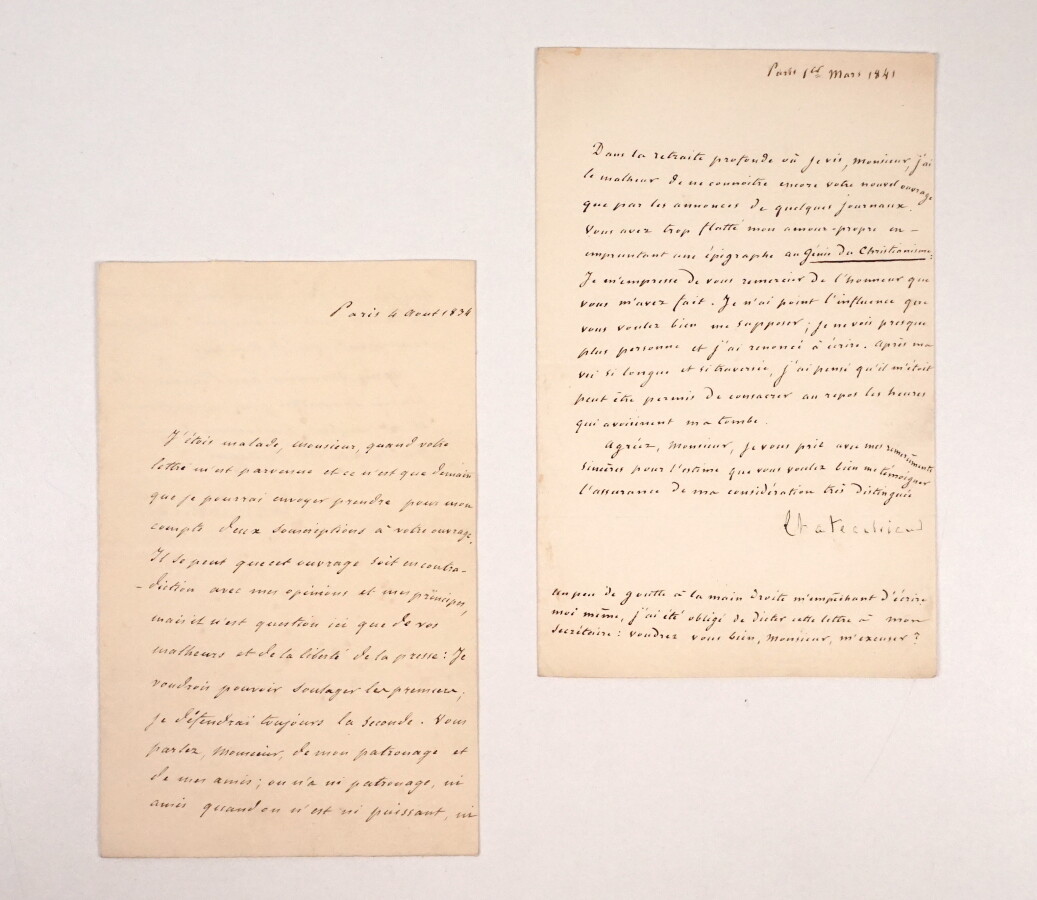 Paris 4 aout 1834
J'étois malade, monsieur, quand votre
lettre m'est parvenue et ce n'est que demain
que je pourrai envoyer prendre pour mon
compte deux souscriptions à votre ouvrage.
Il se peut que cet ouvrage soit en contra-
-diction avec mes opinions et mes principes,
mais il n'est question ici que de vos
malheurs et de la liberté de la presse: Je
voudrois pouvoir soulager les premiers;
je défendrai toujours la seconde. Vous
parlez, monsieur, de mon patronage et
de mes amis; on n'a ni patronage, ni
amis quand on n'est ni puissant, ni
Paris 1er Mars 1841
Dans la retraite profonde où je vis, monsieur, j'ai
le malheur de ne connoitre encore votre nouvel ouvrage
que par les annonces de quelques journaux.
Vous avez trop flatté mon amour-propre en-
empruntant une épigraphe au Génie du Christianisme.
Je m'empresse de vous remercier de l'honneur que
vous m'avez fait. Je n'ai point l'influence que
vous voulez bien me supposer; je ne vois presque
plus personne et j'ai renoncé à écrire. Après ma
vie si longue et si traversée, j'ai pensé qu'il m'étoit
peut être permis de consacrer au repos les heures
qui avoisinent ma tombe.
Agréez, Monsieur, je vous prie avec mes remerciments
sincères pour l'estime que vous voulez bien me témoigner
l'assurance de ma considération très distinguée
Chateaubriand
un peu de goutte à la main droite m'empêchant d'écrire
moi même, j'ai été obligé de dicter cette lettre à mon
secrétaire: voudrez vous bien, Monsieur, m'excuser?